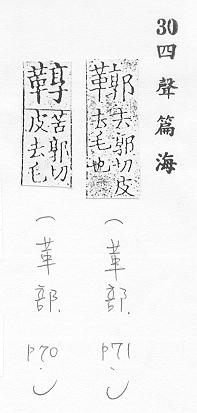 30四聲篇海
鞹
郭切皮
去毛也
(革部.p71.)
鞟
苦郭切
皮去毛
(革部.p70.)